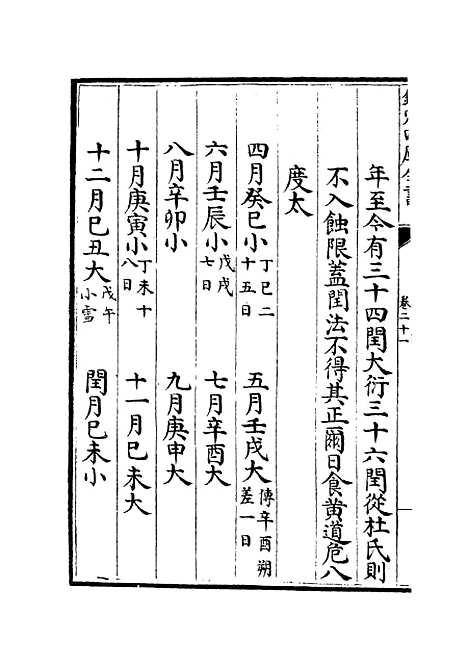 年至今有三十四閏大衍三十六閏從杜氏則
不入蝕限蓋閏法不得其正爾日食黄道危八
度太
四月癸巳小丁巳二十五日 五月壬戌大傳辛酉朔差一日
六月壬辰小戊戌七日 七月辛酉大
八月辛卯小 九月庚申大
十月庚寅小丁未十八日 十一月巳未大
十二月巳丑大戊午小雪 閏月巳未小
卷二十一